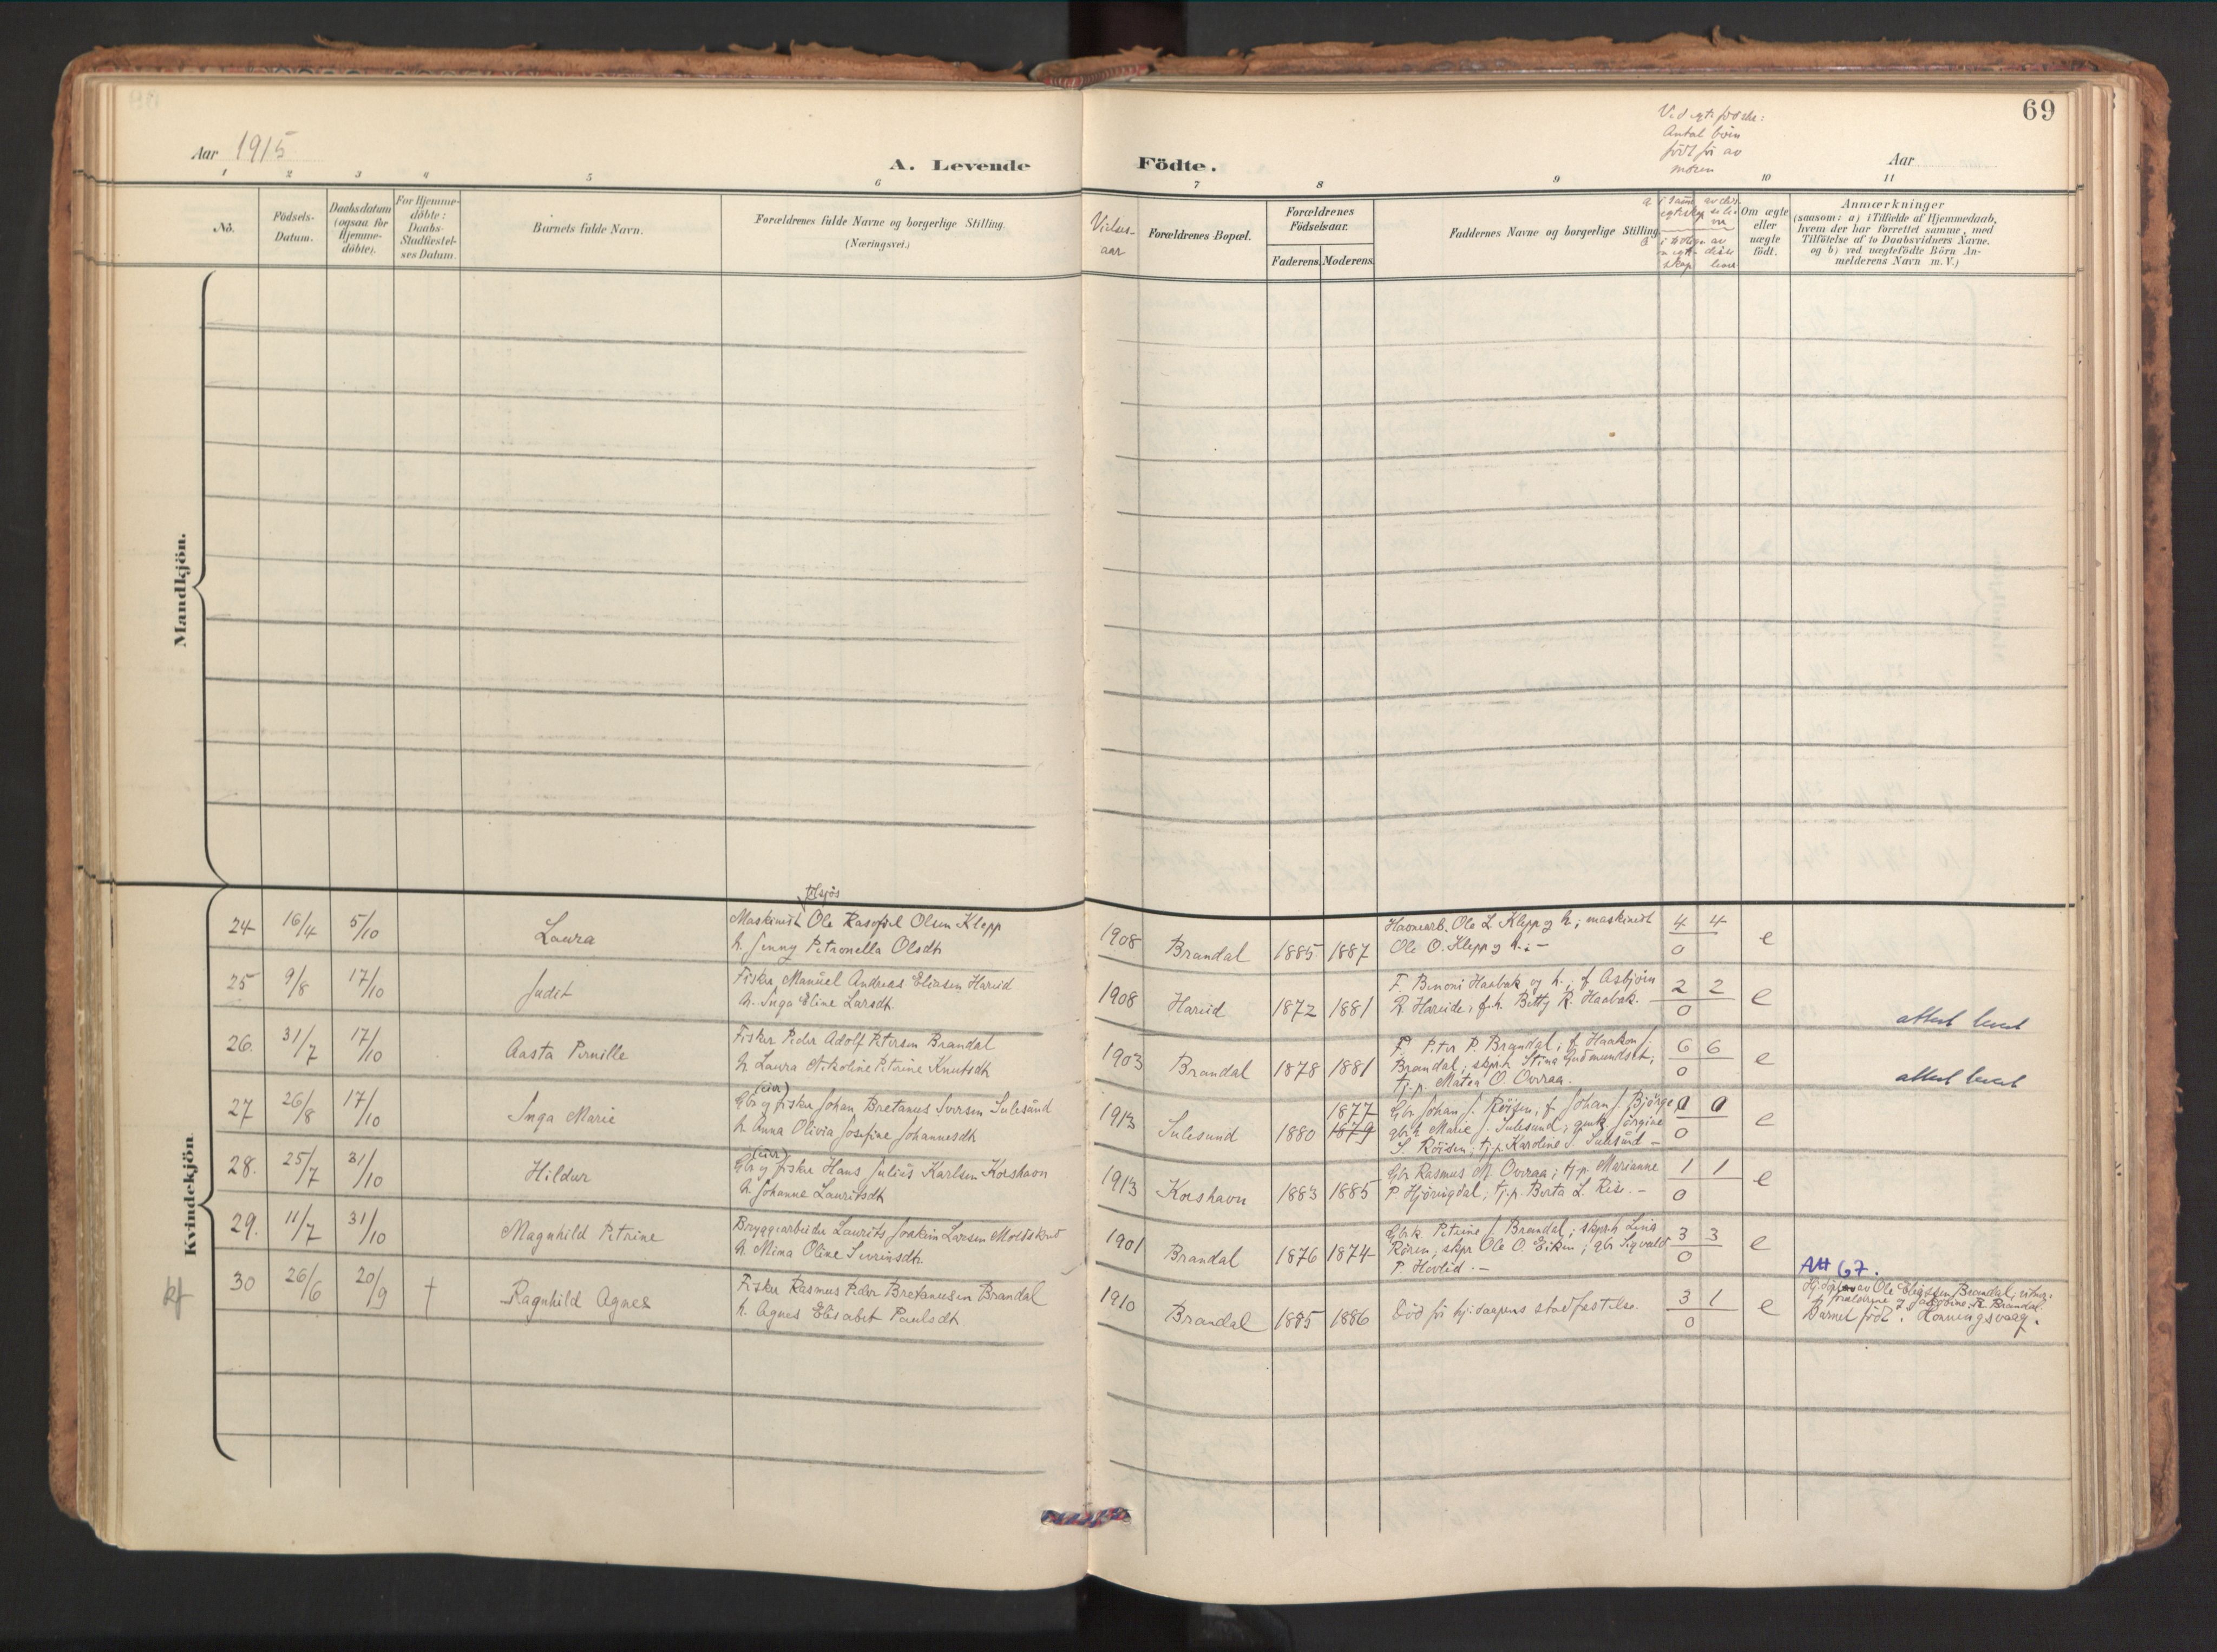 69
Aar 1915
A. Levende Födte.
Aar
Antal børn
født før av
moren
1 2 3 4 5 6 7 8 9 10 11
No.
Födsels-
Datum.
Daabsdatum
(ogsaa for
Hjemme-
döbte).
For Hjemme-
döbte:
Daabs-
Stadfæstel-
ses Datum.
Barnets fulde Navn.
Forældrenes fulde Navne og borgerlige Stilling
(Næringsvei.)
Vielses-
aar
Forældrenes Bopæl.
Forældrenes
Födselsaar.
Faderens. Moderens.
Faddernes Navne og borgerlige Stilling.
Om ægte
eller
uægte
födt.
Anmærkninger
(saasom: a) i Tilfælde af Hjemmedaab,
hvem der har forrettet samme, med
Tilföielse af to Daabsvidners Navne.
og b) ved uægtefödte Börn An-
melderens Navn m. V.)
Mandkjön.
Kvindekjön.
24 16/4 5/10 Laura
Maskinist Ole Olsen Klepp
h. Jenny Petronella Olsdtr
1908 Brandal 1885 1887
Havnearb. Ole L. Klepp og h.; maskinist
Ole O. Klepp og h.; –
4 4
0
e
25 9/8 17/10 Judit
Fisker Manuel Andreas Eliasen Hareid
h. Inga Eline Larsdt.
1908 Hareid 1872 1881
F. Benoni Haabak og h.; f. Asbjørn
R. Hareide; f.h. Betty R. Haabak.
2 2
0
e
attest levert
26. 31/7 17/10 Aasta Pernille
Fisker Peder Adolf Petersen Brandal
h. Laura Nikoline Petrine Knutsdt
1903 Brandal 1878 1881
F. Peter P. Brandal; f. Haakon J.
Brandal; skprh Stina Gudmundset;
tj.p. Matea O. Overaa.
6 6
0
e
attest levert
27 26/8 17/10 Inga Marie
(eier)
Gbr og fisker Johan Bretanus Iversen Sulesund
h. Anna Olivia Josefine Johannesdt
1913 Sulesund 1880 1877
1879
Gbr Johan J. Röisen; f. Johan J. Björge;
gbr.h Marie J. Sulesund; gmk. Jörgine
S. Röisen; tj.p. Karoline S. Sulesund –
0 0
0
e
28. 25/7 31/10 Hildur
(eier)
Gbr og fisker Hans Julius Karlsen Korshavn
h. Johanne Lauritsdt
1913 Korshavn 1883 1885
Gbr Rasmus M. Overaa; tj.p. Marianne
P. Hjöringdal; tj.p. Berta L. Rise. –
1 1
0
e
29. 11/7 31/10 Magnhild Petrine
Bryggearbeider Laurits Joakim Larsen
h. Mina Oline Iverinsdt.
1901 Brandal 1876 1874
Gbrk Petrine J. Brandal; skprh Lina
Rören; skpr Ole O. Eiken; gbr Sigvald
P. Hovlid. –
3 3
0
e
30 26/6 20/9 † Ragnhild Agnes
Fisker Rasmus Peder Bretanusen Brandal
h. Agnes Elisabet Paulsdt
1910 Brandal 1885 1886
Död før hj.daapens stadfæstelse.
3 1
0
e
Att 67.
av Ole Brandal,
Barnet född i Honningsvaag.